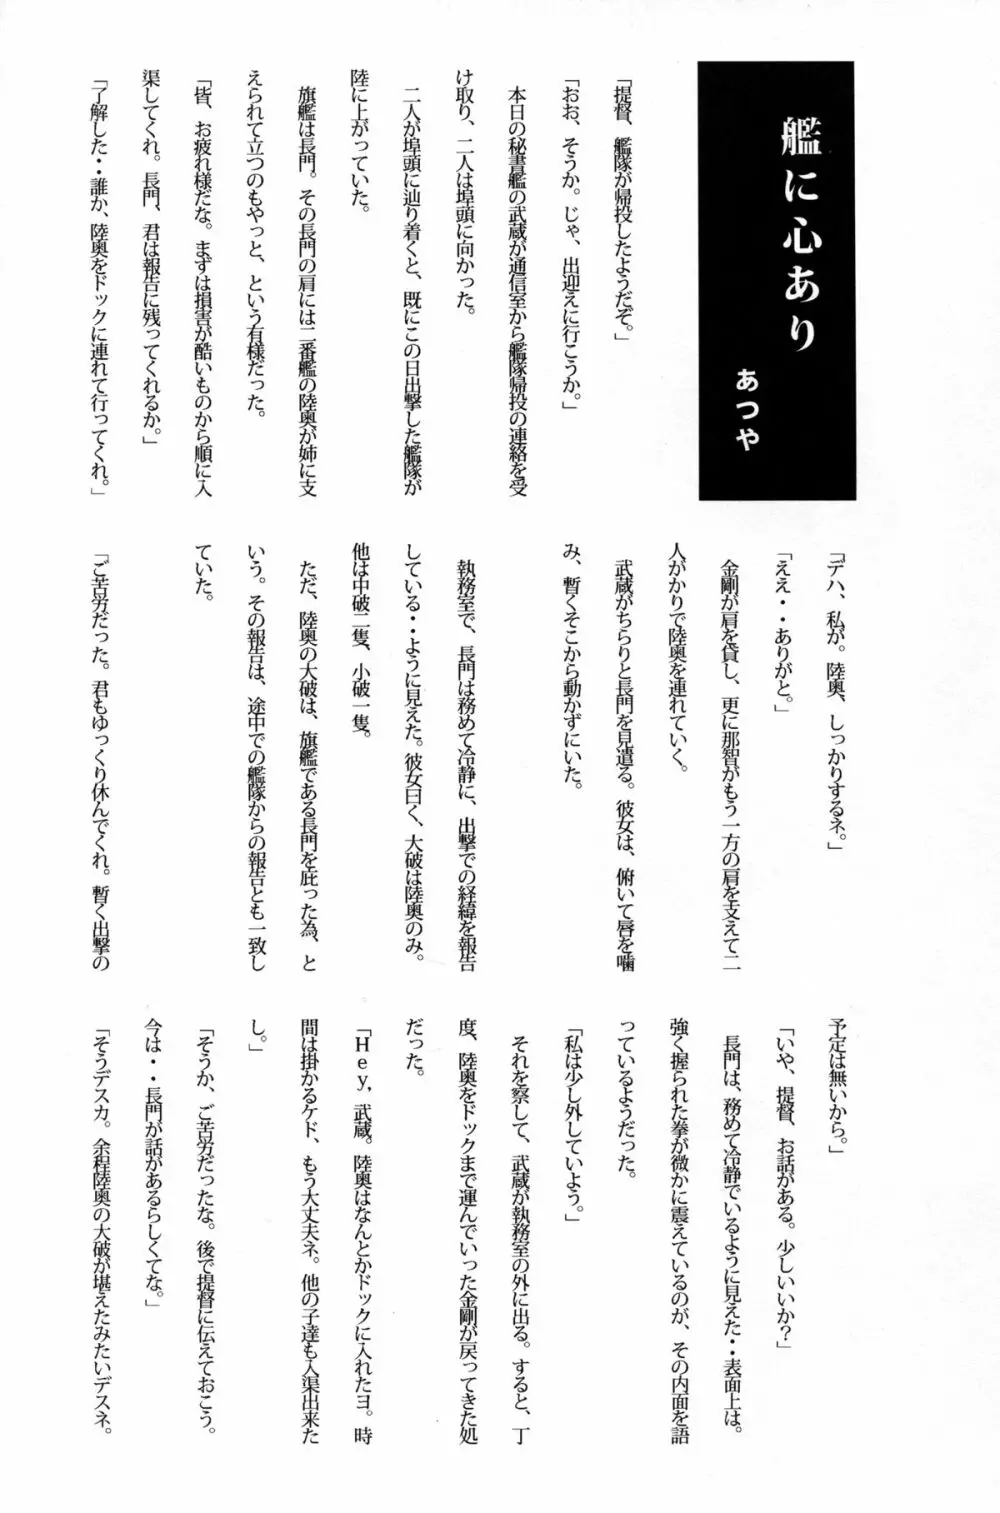 艦に心あり
あつや
「提督、艦隊が帰投したようだぞ。」
「おお、そうか。じゃ、出迎えに行こうか。」
　本日の秘書艦の武蔵が通信室から艦隊帰投の連絡を受
け取り、二人は埠頭に向かった。
　二人が埠頭に辿り着くと、既にこの日出撃した艦隊が
陸に上がっていた。
　旗艦は長門。その長門の肩には二番艦の陸奥が姉に支
えられて立つのもやっと、という有様だった。
「皆、お疲れ様だな。まずは損害が酷いものから順に入
渠してくれ。長門、君は報告に残ってくれるか。」
「了解した・・誰か、陸奥をドックに連れて行ってくれ。」
「デハ、私が。陸奥、しっかりするネ。」
「ええ・・ありがと。」
　金剛が肩を貸し、更に那智がもう一方の肩を支えて二
人がかりで陸奥を連れていく。
　武蔵がちらりと長門を見遣る。彼女は、俯いて唇を噛
み、暫くそこから動かずにいた。
　執務室で、長門は務めて冷静に、出撃での経緯を報告
している・・ように見えた。彼女曰く、大破は陸奥のみ。
他は中破二隻、小破一隻。
　ただ、陸奥の大破は、旗艦である長門を庇った為、と
いう。その報告は、途中での艦隊からの報告とも一致し
ていた。
「ご苦労だった。君もゆっくり休んでくれ。暫く出撃の
予定は無いから。」
「いや、提督、お話がある。少しいいか？」
　長門は、務めて冷静でいるように見えた・・表面上は。
強く握られた拳が微かに震えているのが、その内面を語
っているようだった。
「私は少し外していよう。」
　それを察して、武蔵が執務室の外に出る。すると、丁
度、陸奥をドックまで運んでいった金剛が戻ってきた処
だった。
「Ｈｅｙ，武蔵。陸奥はなんとかドックに入れたヨ。時
間は掛かるケド、もう大丈夫ネ。他の子達も入渠出来た
し。」
「そうか、ご苦労だったな。後で提督に伝えておこう。
今は・・長門が話があるらしくてな。」
「そうデスカ。余程陸奥の大破が堪えたみたいデスネ。